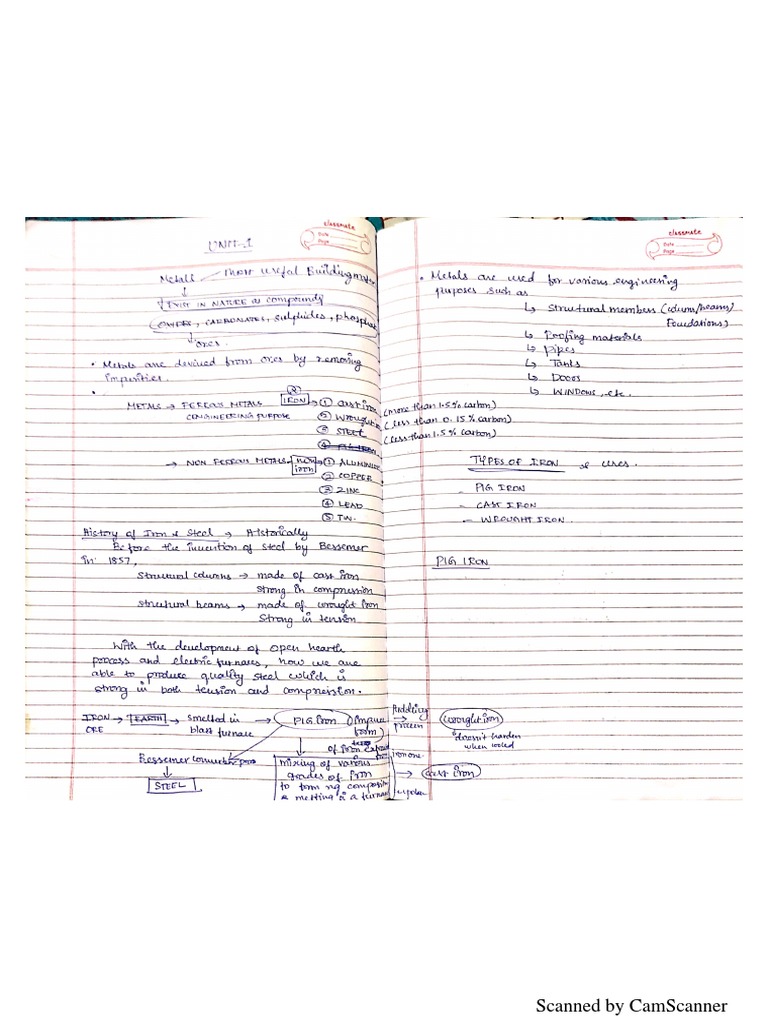 classmate
Date
Page
UNIT-1
Metals - most useful Building mater
↓
EXIST IN NATURE as compounds
OXIDES, CARBONATES, sulphides, phosphate
↓ ores.
• Metals are derived from ores by removing
impurities.
METALS → FERROUS METALS IRON → ① CAST IRON (more than 1.5% carbon)
(ENGINEERING PURPOSE ② WROUGHT (less than 0.15% carbon)
③ STEEL (less than 1.5% carbon)
④ PIG IRON
→ NON FERROUS METALS non iron → ① ALUMINIUM
② COPPER
③ ZINC
④ LEAD
⑤ TIN.
History of Iron & Steel → Historically
Before the invention of steel by Bessemer
in 1857,
structural columns → made of cast iron
strong in compression
structural beams → made of wrought iron
Strong in tension
With the development of open hearth
process and electric furnaces, now we are
able to produce quality steel which is
strong in both tension and compression.
IRON ORE → EARTH → smelted in blast furnace → PIG Iron (impure form) → Puddling process → wrought iron
doesn't harden
when cooled
Bessemer
STEEL
mixing of various
grades of iron
to form composition
& melting in a furnace
→ cast iron
classmate
Date
Page
• Metals are used for various engineering
purposes such as
↳ Structural members (column/beams/
Foundations)
↳ Roofing materials
↳ Pipes
↳ Tanks
↳ Doors
↳ WINDOWS, etc.
TYPES OF IRON & uses.
- PIG IRON
- CAST IRON
- WROUGHT IRON.
PIG IRON
Scanned by CamScanner